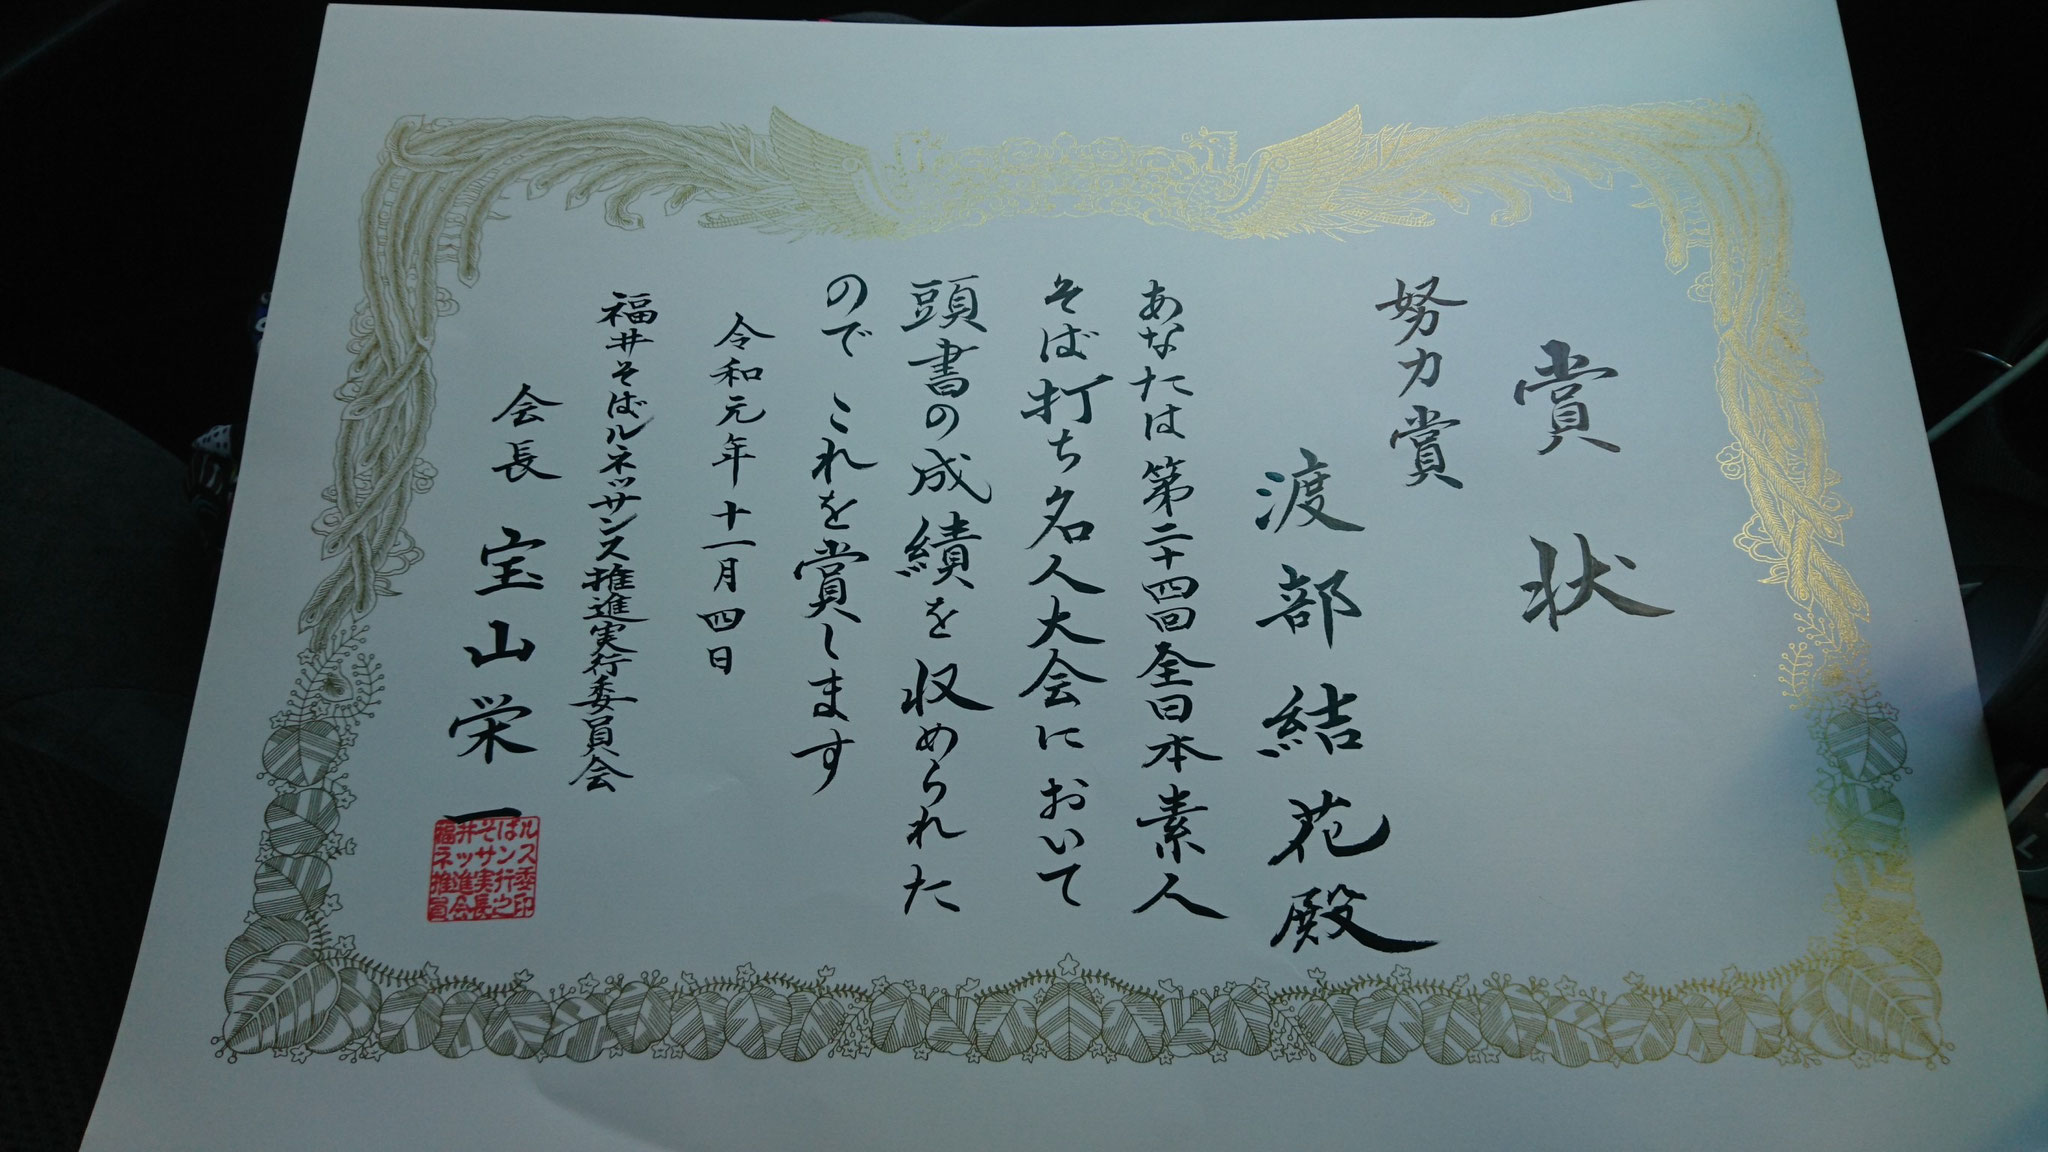 賞状
努力賞
渡部結花殿
あなたは第二十四回全日本素人
そば打ち名人大会において
頭書の成績を収められた
のでこれを賞します
令和元年十一月四日
福井そばルネッサンス推進実行委員会
会長 宝山栄一
福井そばル
ネッサンス
推進実行委
員会長之印